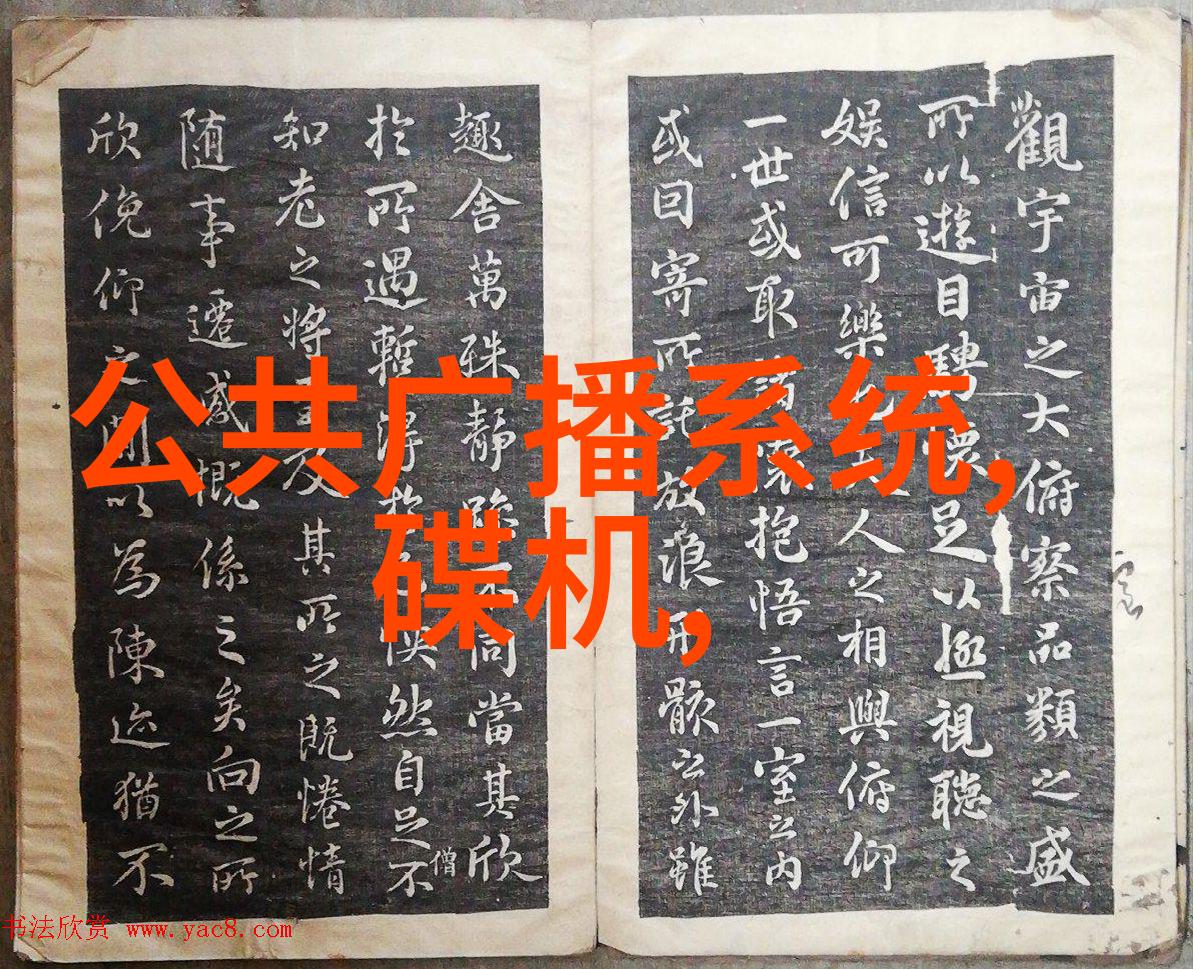 觀宇宙之大俯察品類之盛
所以遊目騁懷足以極視聽之
娛信可樂也夫人之相與俯仰
一世或取諸懷抱悟言一室之内
或因寄所託放浪形骸之外雖
趣舍萬殊靜躁不同當其欣
於所遇暫得於己快然自足不
僧
知老之將至及其所之既惓情
随事遷感慨係之矣向之所
欣俛仰之間以為陳迹猶不
公共广播系统,
碟机,
书法欣赏 www.yac8.com